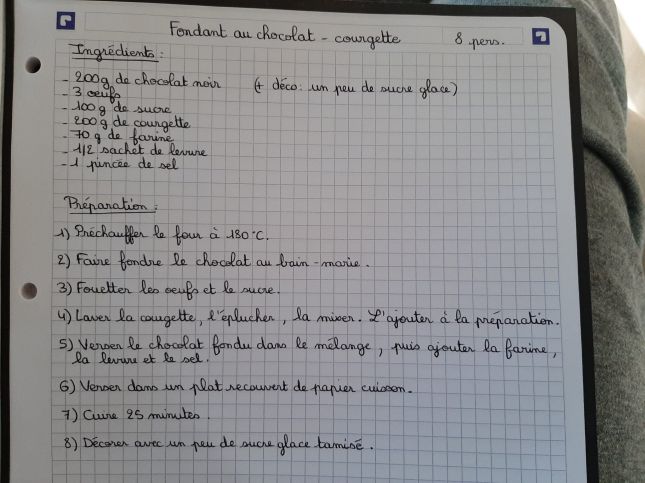 Fondant au chocolat - courgette
8 pers.
Ingrédients :
- 200g de chocolat noir (+ déco : un peu de sucre glace)
- 3 oeufs
- 100 g de sucre
- 200 g de courgette
- 70 g de farine
- 1/2 sachet de levure
- 1 pincée de sel
Préparation :
1) Préchauffer le four à 180°C.
2) Faire fondre le chocolat au bain-marie.
3) Fouetter les oeufs et le sucre.
4) Laver la courgette, l'éplucher, la mixer. L'ajouter à la préparation.
5) Verser le chocolat fondu dans le mélange, puis ajouter la farine,
la levure et le sel.
6) Verser dans un plat recouvert de papier cuisson.
7) Cuire 25 minutes.
8) Décorer avec un peu de sucre glace tamisé.